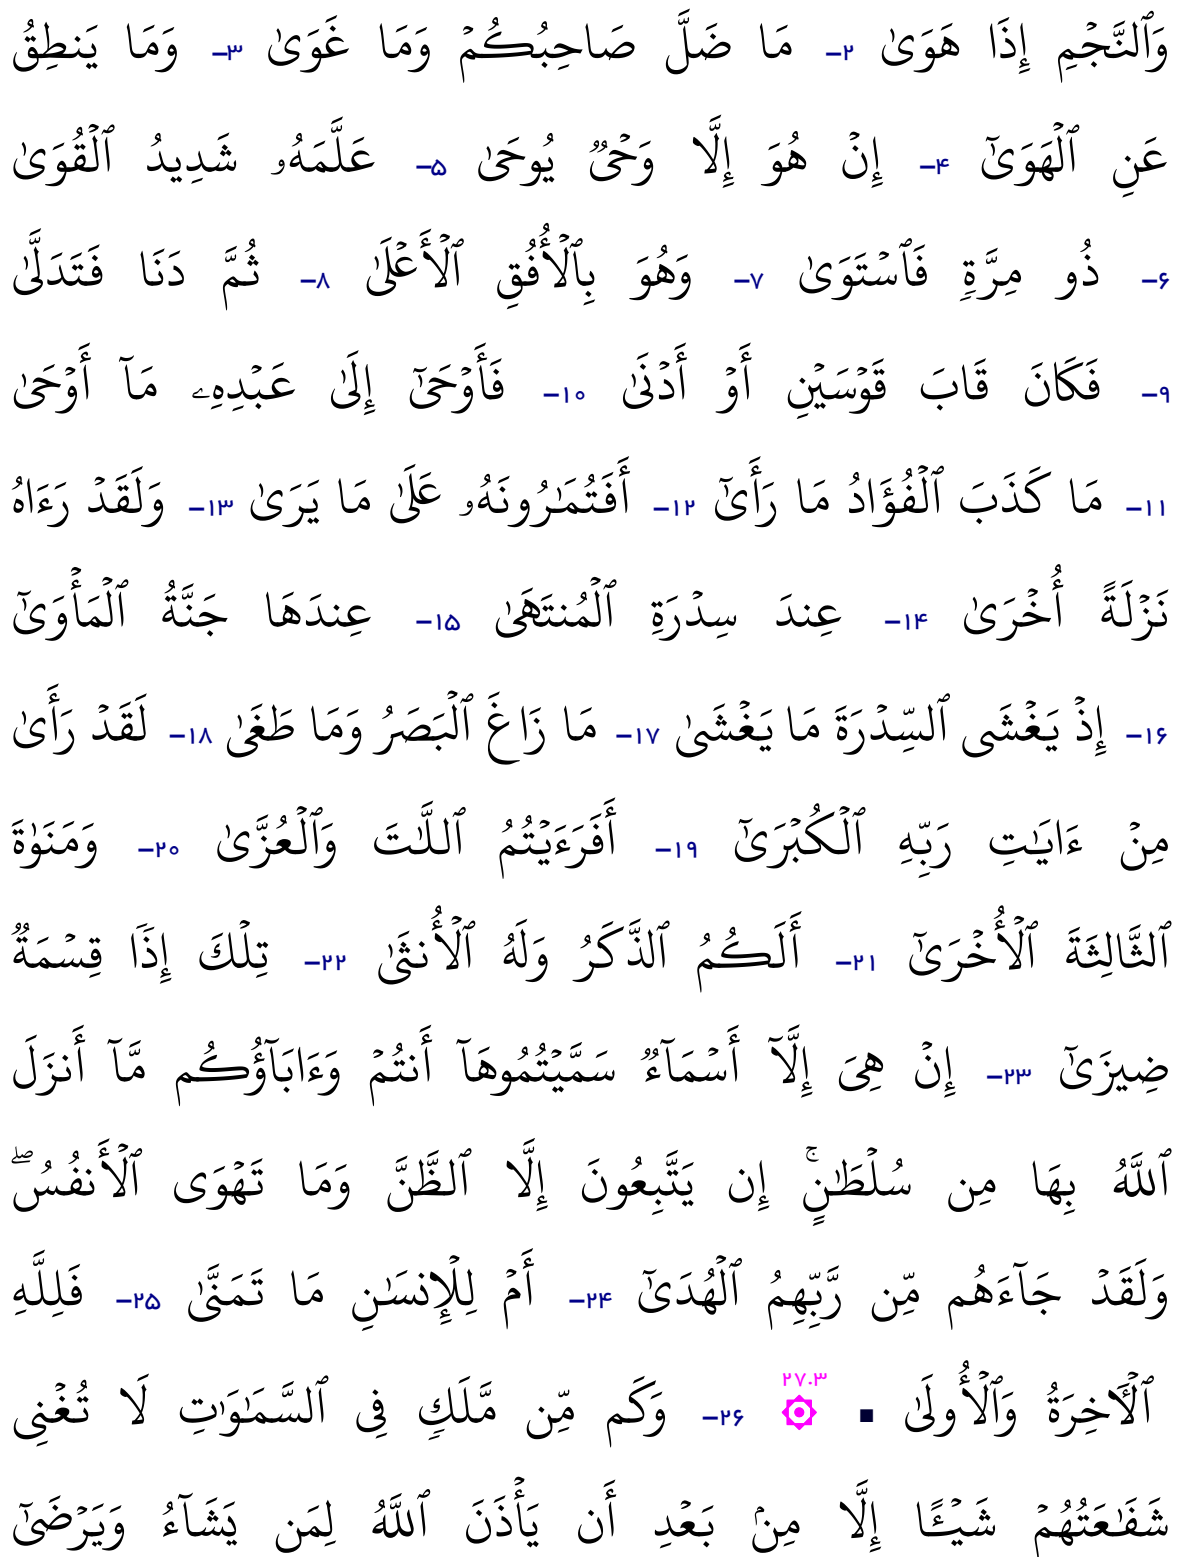 وَٱلنَّجۡمِ إِذَا هَوَىٰ ۲– مَا ضَلَّ صَاحِبُكُمۡ وَمَا غَوَىٰ ۳– وَمَا يَنطِقُ
عَنِ ٱلۡهَوَىٰٓ ۴– إِنۡ هُوَ إِلَّا وَحۡيٞ يُوحَىٰ ۵– عَلَّمَهُۥ شَدِيدُ ٱلۡقُوَىٰ
۶– ذُو مِرَّةٖ فَٱسۡتَوَىٰ ۷– وَهُوَ بِٱلۡأُفُقِ ٱلۡأَعۡلَىٰ ۸– ثُمَّ دَنَا فَتَدَلَّىٰ
۹– فَكَانَ قَابَ قَوۡسَيۡنِ أَوۡ أَدۡنَىٰ ۱۰– فَأَوۡحَىٰٓ إِلَىٰ عَبۡدِهِۦ مَآ أَوۡحَىٰ
۱۱– مَا كَذَبَ ٱلۡفُؤَادُ مَا رَأَىٰٓ ۱۲– أَفَتُمَٰرُونَهُۥ عَلَىٰ مَا يَرَىٰ ۱۳– وَلَقَدۡ رَءَاهُ
نَزۡلَةً أُخۡرَىٰ ۱۴– عِندَ سِدۡرَةِ ٱلۡمُنتَهَىٰ ۱۵– عِندَهَا جَنَّةُ ٱلۡمَأۡوَىٰٓ
۱۶– إِذۡ يَغۡشَى ٱلسِّدۡرَةَ مَا يَغۡشَىٰ ۱۷– مَا زَاغَ ٱلۡبَصَرُ وَمَا طَغَىٰ ۱۸– لَقَدۡ رَأَىٰ
مِنۡ ءَايَٰتِ رَبِّهِ ٱلۡكُبۡرَىٰٓ ۱۹– أَفَرَءَيۡتُمُ ٱللَّٰتَ وَٱلۡعُزَّىٰ ۲۰– وَمَنَوٰةَ
ٱلثَّالِثَةَ ٱلۡأُخۡرَىٰٓ ۲۱– أَلَكُمُ ٱلذَّكَرُ وَلَهُ ٱلۡأُنثَىٰ ۲۲– تِلۡكَ إِذٗا قِسۡمَةٞ
ضِيزَىٰٓ ۲۳– إِنۡ هِيَ إِلَّآ أَسۡمَآءٞ سَمَّيۡتُمُوهَآ أَنتُمۡ وَءَابَآؤُكُم مَّآ أَنزَلَ
ٱللَّهُ بِهَا مِن سُلۡطَٰنٍۚ إِن يَتَّبِعُونَ إِلَّا ٱلظَّنَّ وَمَا تَهۡوَى ٱلۡأَنفُسُۖ
وَلَقَدۡ جَآءَهُم مِّن رَّبِّهِمُ ٱلۡهُدَىٰٓ ۲۴– أَمۡ لِلۡإِنسَٰنِ مَا تَمَنَّىٰ ۲۵– فَلِلَّهِ
ٱلۡأٓخِرَةُ وَٱلۡأُولَىٰ ▪ ۞ ۲۷.۳ ۲۶– وَكَم مِّن مَّلَكٖ فِي ٱلسَّمَٰوَٰتِ لَا تُغۡنِي
شَفَٰعَتُهُمۡ شَيۡـًٔا إِلَّا مِنۢ بَعۡدِ أَن يَأۡذَنَ ٱللَّهُ لِمَن يَشَآءُ وَيَرۡضَىٰٓ